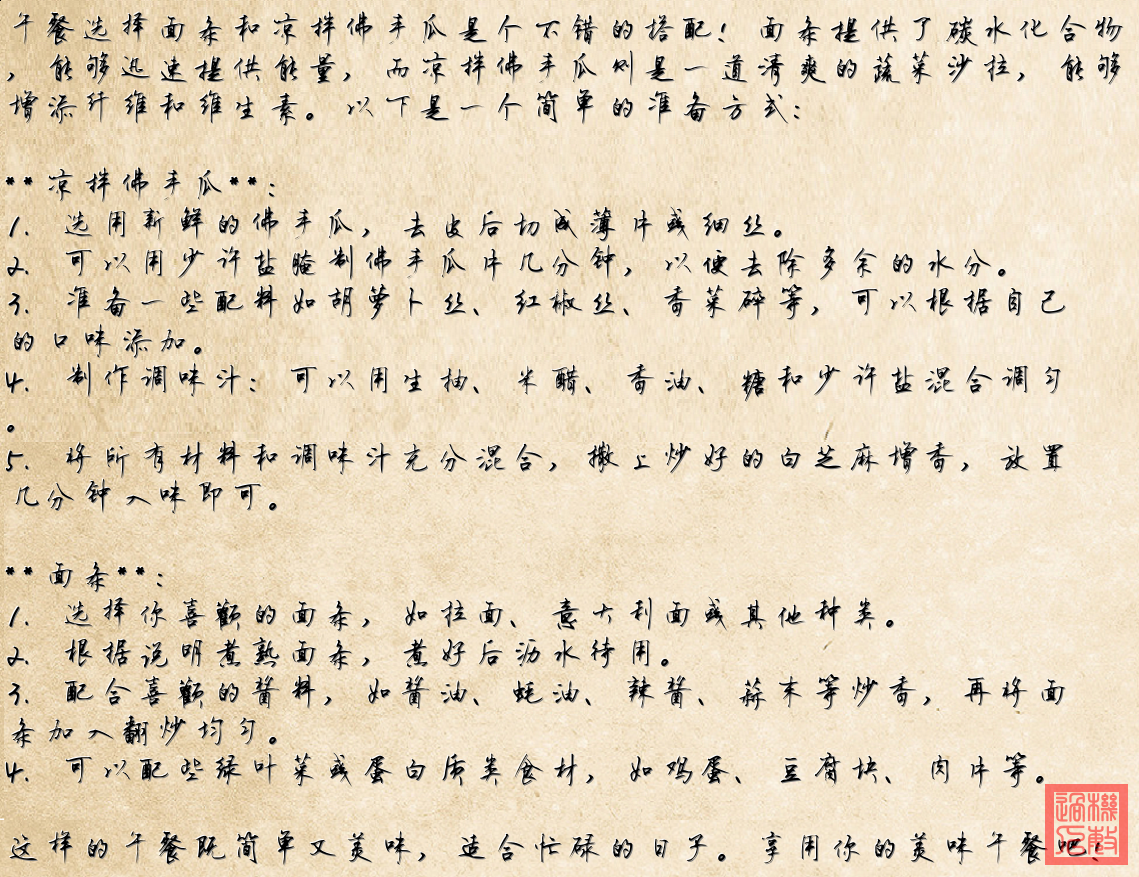 午餐选择面条和凉拌佛手瓜是个不错的搭配！面条提供了碳水化合物
，能够迅速提供能量，而凉拌佛手瓜则是一道清爽的蔬菜沙拉，能够
增添纤维和维生素。以下是一个简单的准备方式：
**凉拌佛手瓜**：
1. 选用新鲜的佛手瓜，去皮后切成薄片或细丝。
2. 可以用少许盐腌制佛手瓜片几分钟，以便去除多余的水分。
3. 准备一些配料如胡萝卜丝、红椒丝、香菜碎等，可以根据自己
的口味添加。
4. 制作调味汁：可以用生抽、米醋、香油、糖和少许盐混合调匀
。
5. 将所有材料和调味汁充分混合，撒上炒好的白芝麻增香，放置
几分钟入味即可。
**面条**：
1. 选择你喜欢的面条，如拉面、意大利面或其他种类。
2. 根据说明煮熟面条，煮好后沥水待用。
3. 配合喜欢的酱料，如酱油、蚝油、辣酱、蒜末等炒香，再将面
条加入翻炒均匀。
4. 可以配些绿叶菜或蛋白质类食材，如鸡蛋、豆腐块、肉片等。
这样的午餐既简单又美味，适合忙碌的日子。享用你的美味午餐吧！